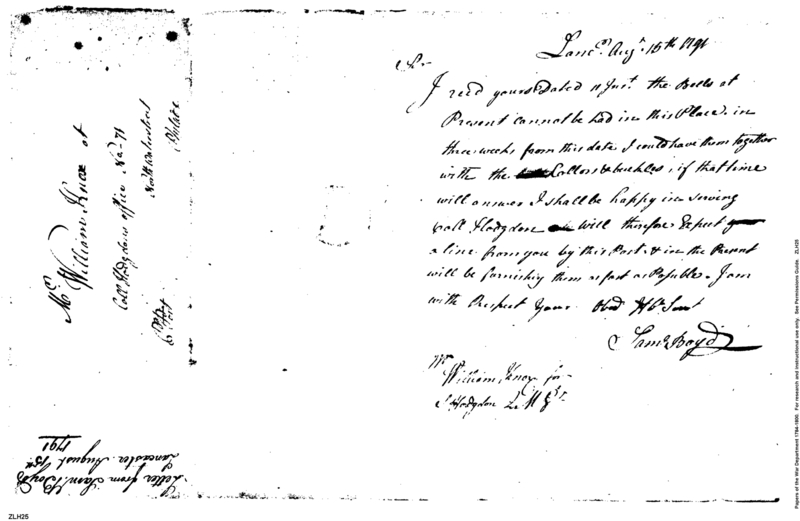 Lancr. Augt. 15th 1791
Sir
I recd yours Dated 11 Just. the Bells at
Present cannot be had in this Place. in
three weeks from this date I could have them together
with the Collors & buckles, if that time
will answer I shall be happy in serving
Coll Hodgdon will therefore Expect
a line from you by this Post. & in the Present
will be furnishing them as fast as Posable. I am
with Respect your Obed Hb. Sert
Saml Boyd
Mr
William Knox for
S Hodgdon Q M G
Mr William Knox at
Coll Hodgdons office No. 71
North Waterstreet
Philada
Pr Post
Letter from Saml. Boyd
Lancaster August 15th
1791
ZLH25
Papers of the War Department 1784-1800. For research and instructional use only. See Permissions Guide. ZLH25